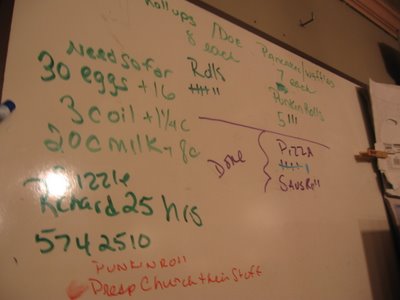 Rollups /Doz Pancakes/waffles
8 each 7 each
Need so far Rolls
30 eggs + 16
Punkin Rolls
3 coil + 1 1/4 c
5
20c milk + 8c
Done
Pizza
Saus Roll
Drizzle
Richard 25 hrs
574 2510
Punkin Roll
Prep Church their Stuff